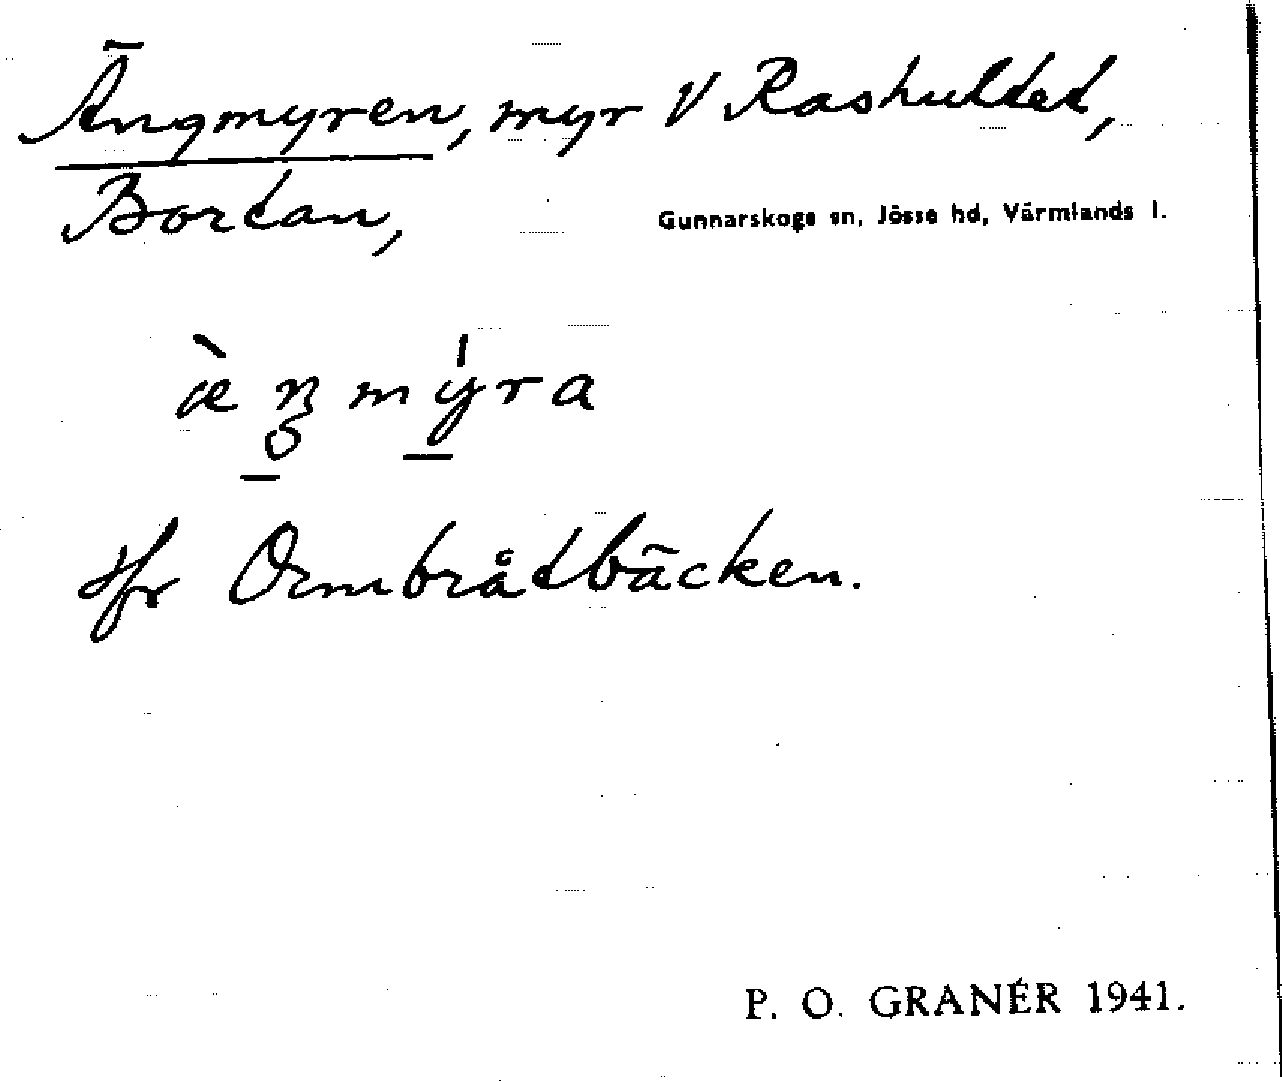 Ängmyren, myr V Rashultet,
Bortan,
Gunnarskogs sn, Jösse hd, Värmlands l.
æ̀ŋmýra
Jfr Ormbråtbäcken.
P. O. GRANÉR 1941.